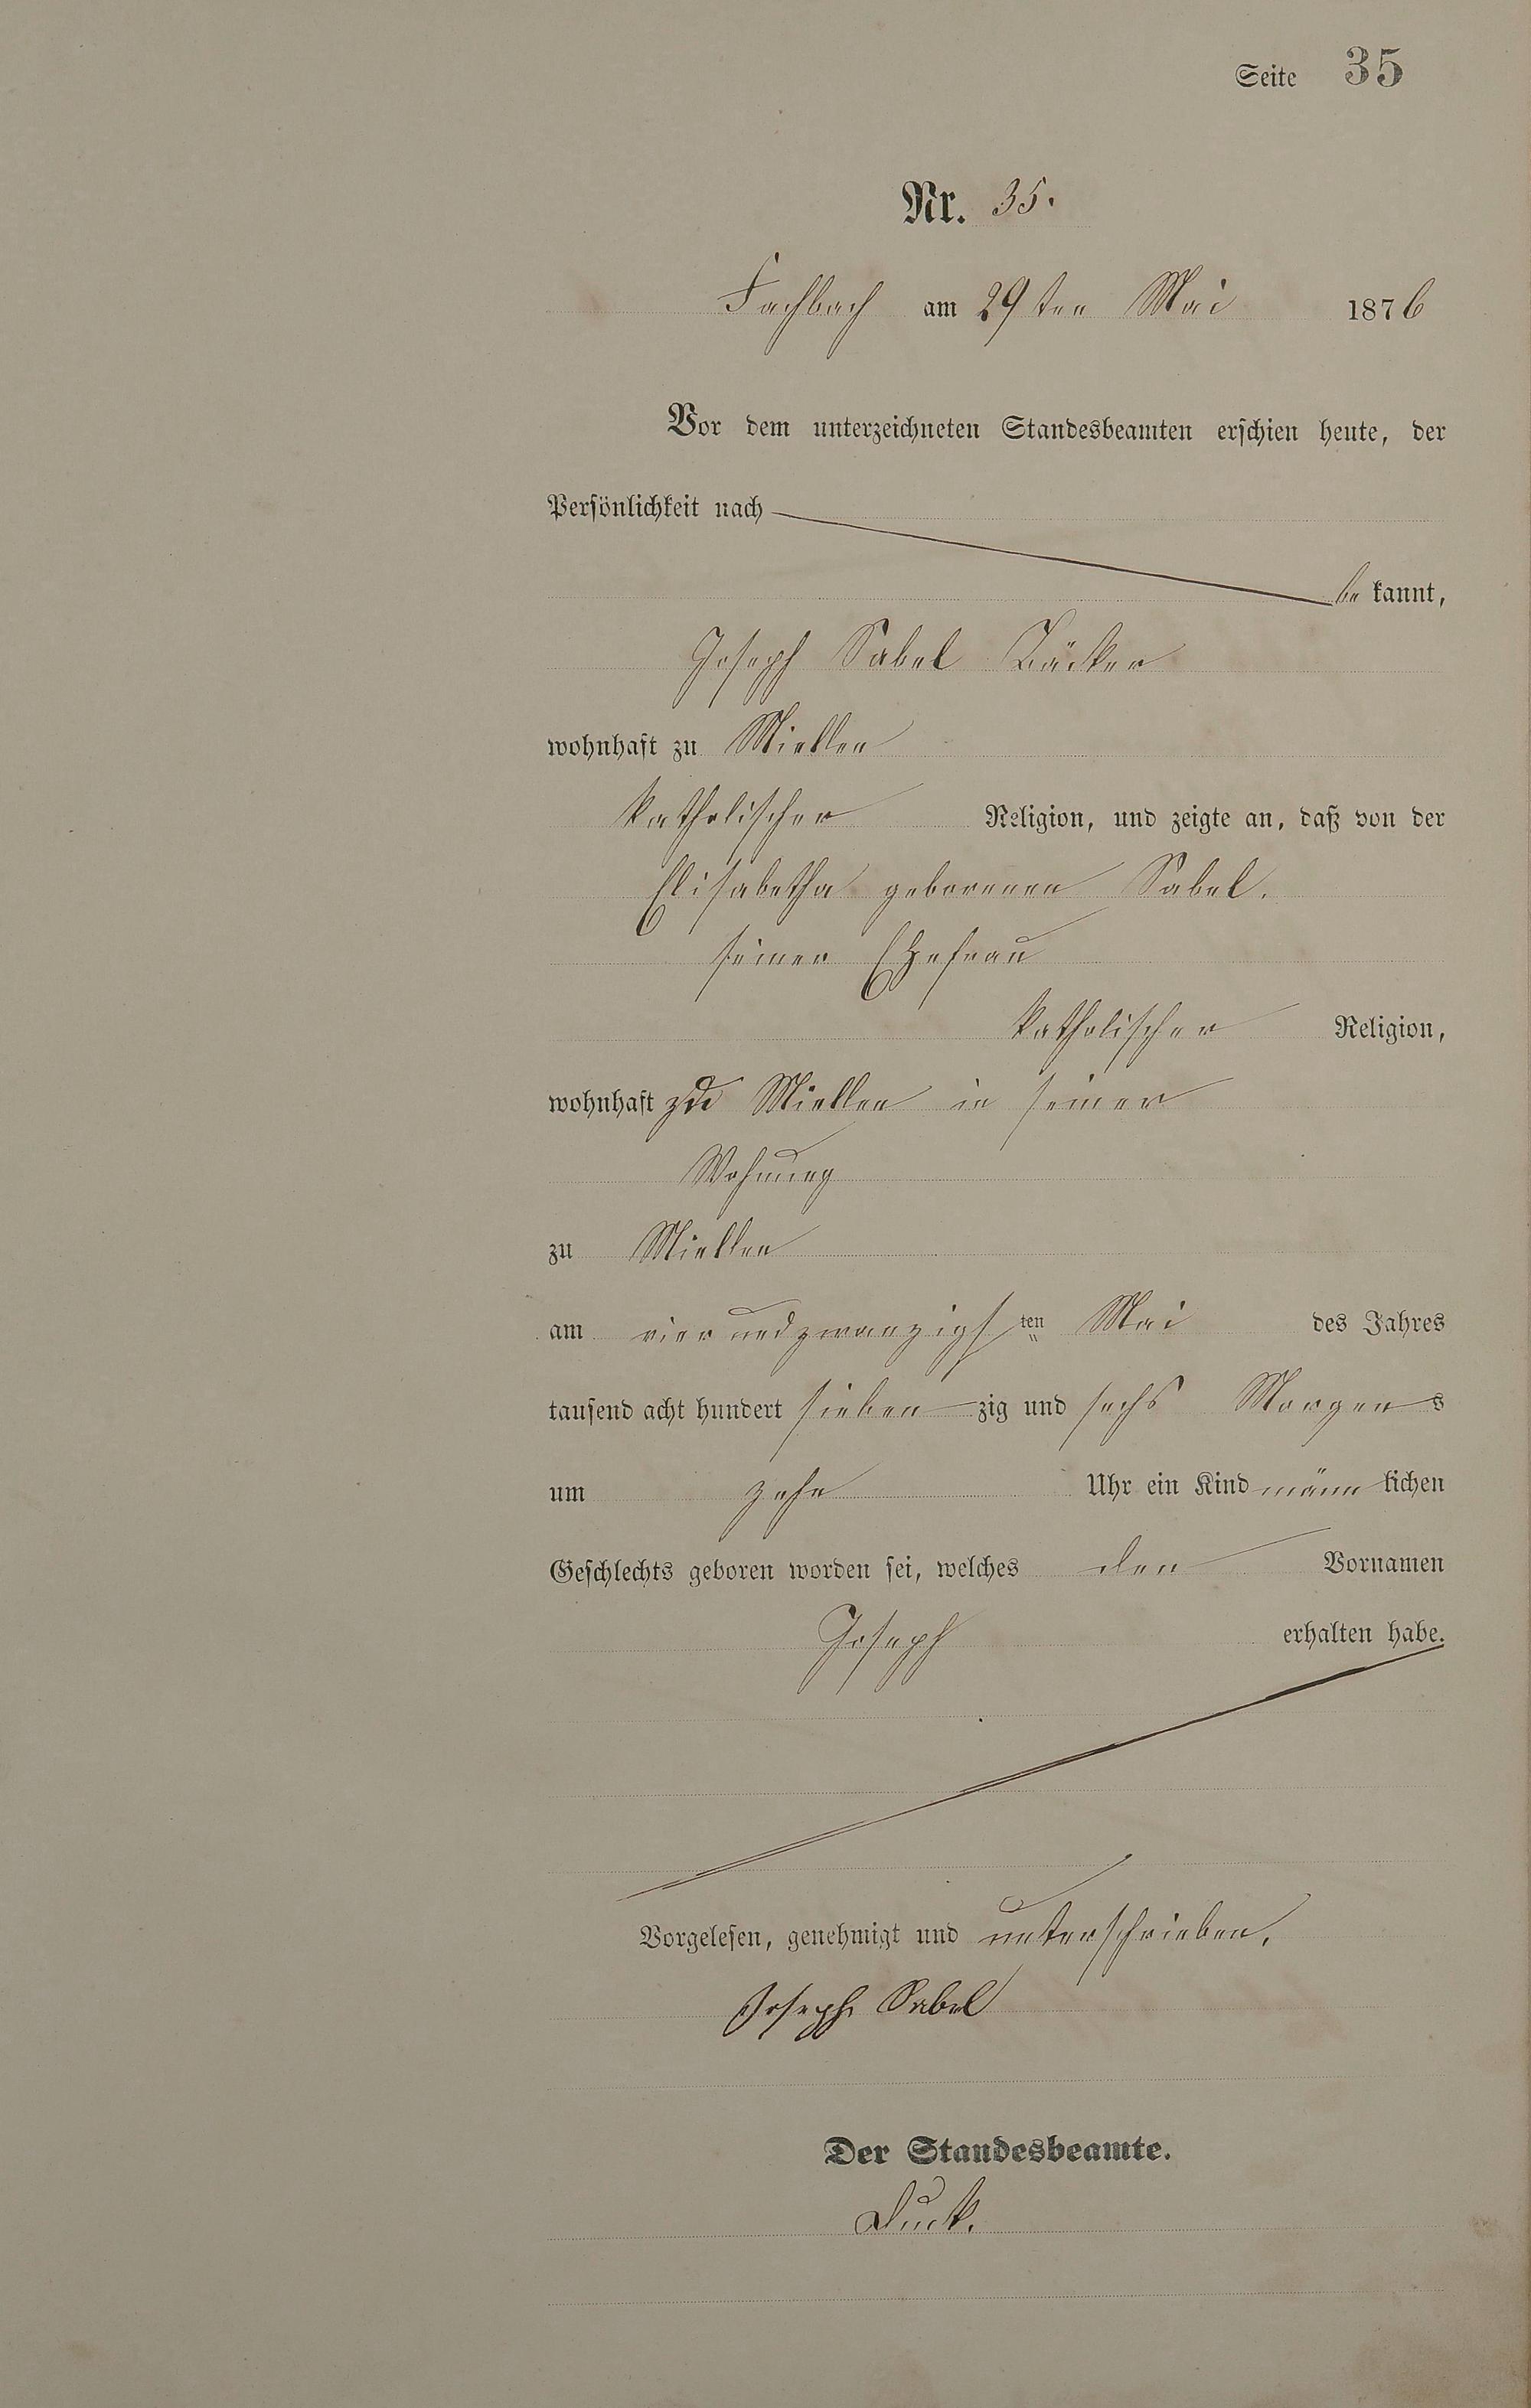 Seite 35
Nr. 35.
Fachbach am 29ten Mai 1876
Vor dem unterzeichneten Standesbeamten erschien heute, der
Persönlichkeit nach
bekannt,
Joseph Sabel Bäcker
wohnhaft zu Miellen
katholischer Religion, und zeigte an, daß von der
Elisabetha geborenen Sabel,
seiner Ehefrau
katholischer Religion,
wohnhaft zu Miellen in seiner
Wohnung
zu Miellen
am vierundzwanzigsten Mai des Jahres
tausend acht hundert siebenzig und sechs Morgens
um zehn Uhr ein Kind männlichen
Geschlechts geboren worden sei, welches den Vornamen
Joseph erhalten habe.
Vorgelesen, genehmigt und unterschrieben.
Joseph Sabel
Der Standesbeamte.
Duck.